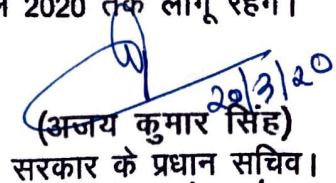 2020 तक लागू रहेंगे।
20/3/20
(अजय कुमार सिंह)
सरकार के प्रधान सचिव।